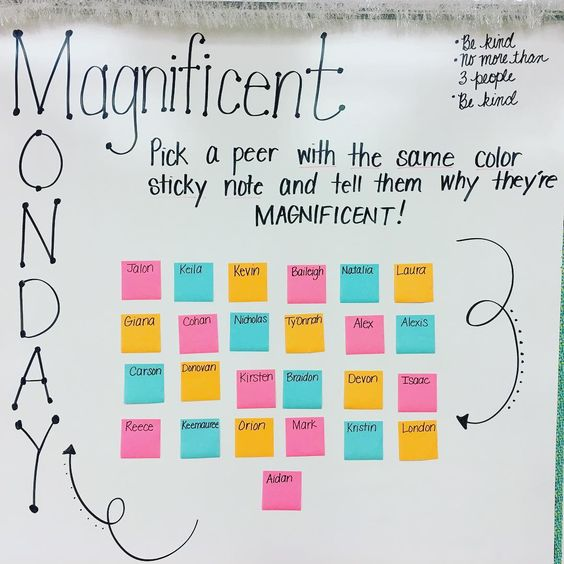 Magnificent
MONDAY
• Be kind
• No more than
3 people
• Be kind
Pick a peer with the same color
sticky note and tell them why they're
MAGNIFICENT!
Jalon Keila Kevin Baileigh Natalia Laura
Giana Cohan Nicholas Ty'Onnah Alex Alexis
Carson Donovan Kirsten Braidon Devon Isaac
Reece Keemauree Orion Mark Kristin London
Aidan